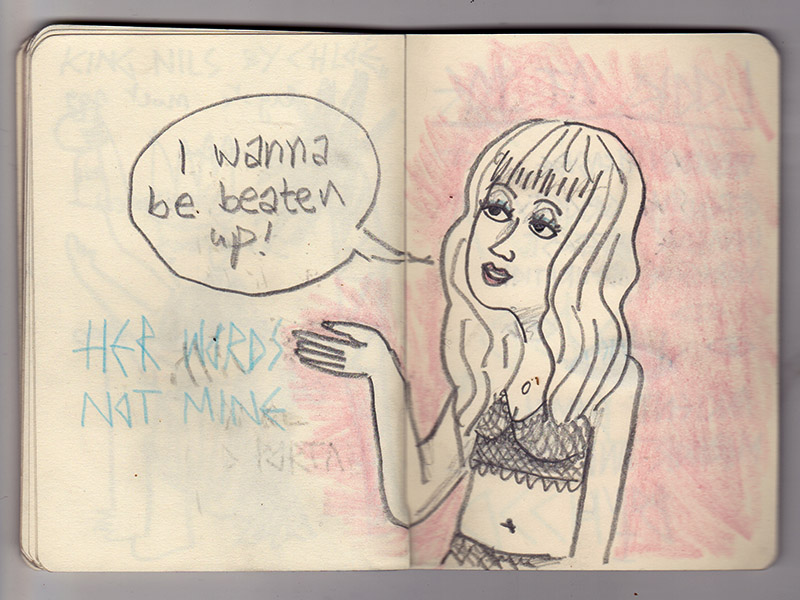 I wanna
be beaten
up!
HER WORDS
NOT MINE